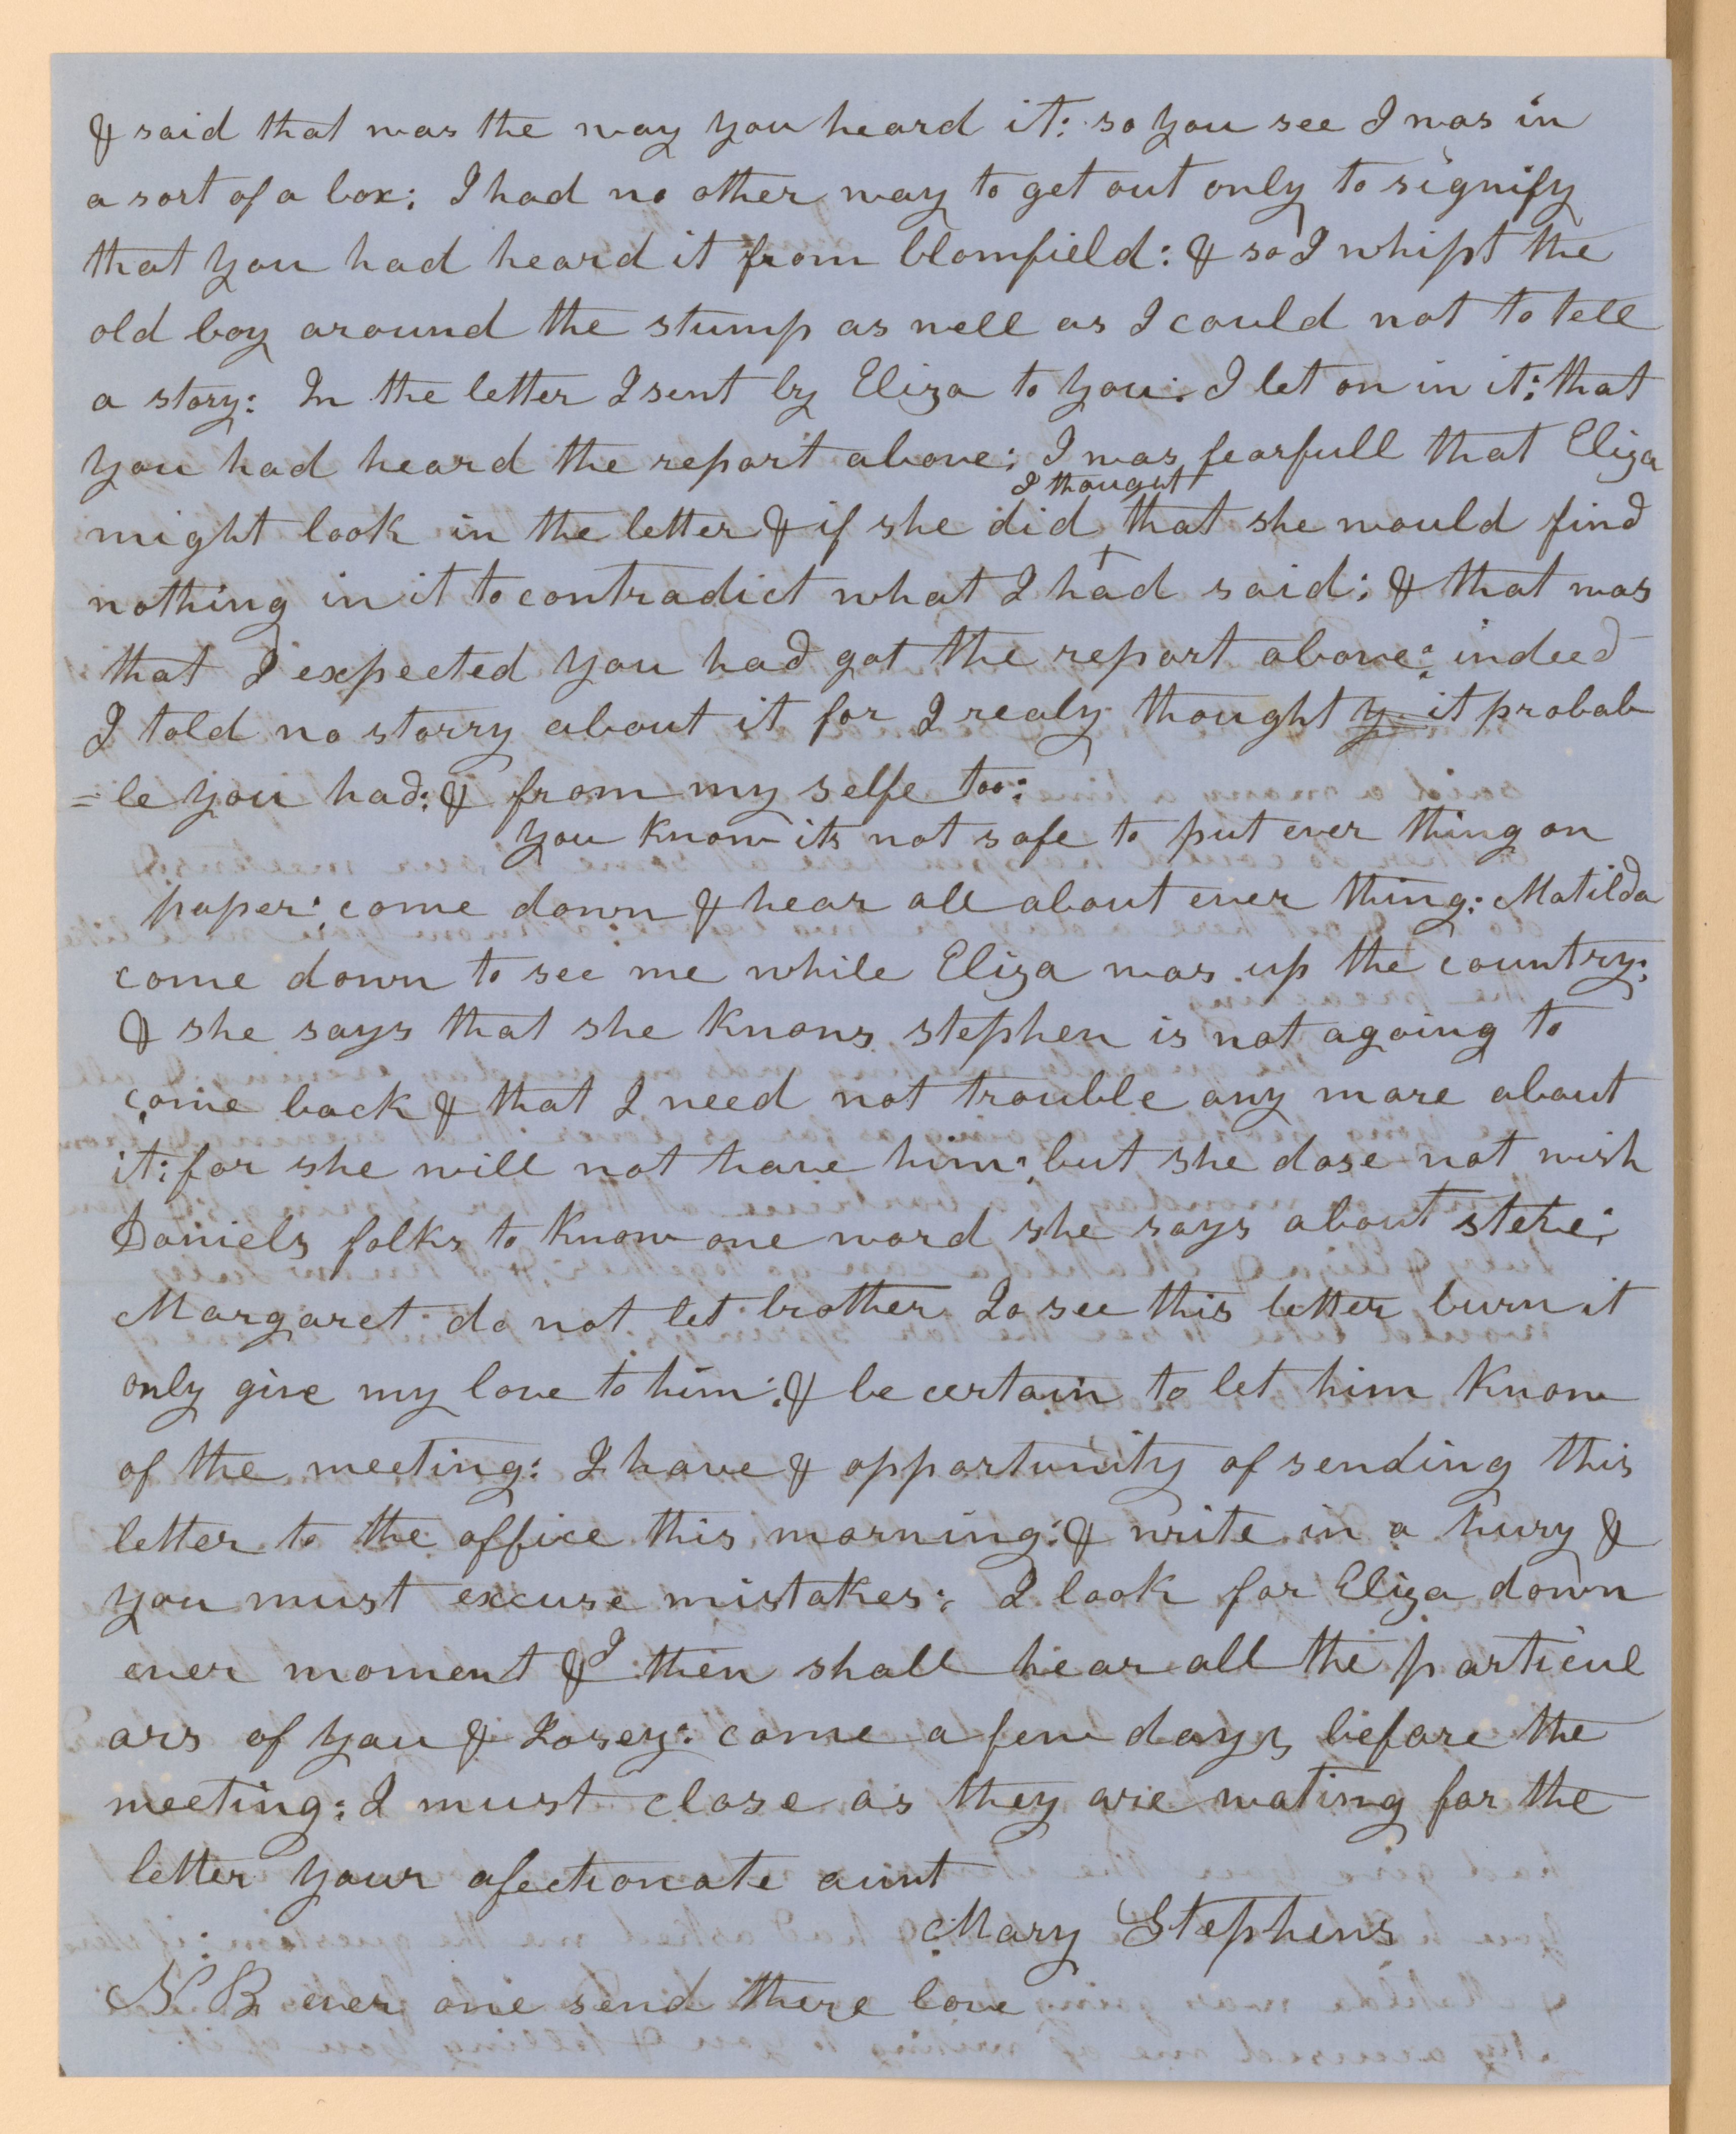 & said that was the way you heard it: so you see I was in
a sort of a box: I had no other way to get out only to signify
that you had heard it from blomfield: & so I whipt the
old boy around the stump as well as I could not to tell
a story: In the letter I sent by Eliza to you: I let on in it: that
you had heard the report above: I was fearfull that Eliza
I thought
might look in the letter & if she did that she would find
nothing in it to contradict what I had said: & that was
that I expected you had got the report above: indeed
I told no storry about it for I realy thought y it probab
=le you had: & from my selfe too:
you know its not safe to put ever thing on
paper: come down & hear all about ever thing: Matilda
come down to see me while Eliza was up the country:
& she says that she knows stephen is not agoing to
come back & that I need not trouble any more about
it: for she will not have him: but she dose not wish
Daniels folks to know one word she says about steve:
Margaret do not let brother Lo see this letter burn it
only give my love to him: & be certain to let him know
of the meeting: I have & opportunity of sending this
letter to the office this morning: & write in a hury &
you must excuse mistakes: I look for Eliza down
ever moment & I then shall hear all the particul
ars of you & Losey: come a few days before the
meeting: I must close as they are wating for the
letter your afectionate aunt
Mary Stephens
N B ever one send there love